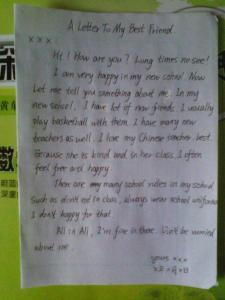 A Letter To My Best Friend
x x x :
Hi! How are you? Lung times no see!
I am very happy in my new school. Now
Let me tell you something about me. In my
new school, I have lot of new friends. I usually
play basketball with them. I have many new
teachers as well. I love my Chinese teacher best.
Because she is kind and in her class, I often
feel free and happy.
There are many school rules in my school
such as don't eat in class, always wear school uniform
I don't happy for that.
All in All, I'm fine in there. Don't be worried
about me.
yours xxx
x年x月x日
深
黄
数